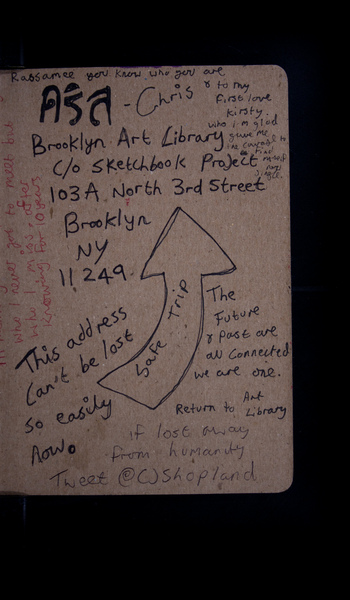 Rassamee you know who you are
คริส - Chris
& to my
first love
Kirsty.
who i'm glad
gave me
the courage to
find
Brooklyn Art Library
C/o Sketchbook Project
103A North 3rd Street
Brooklyn
NY
11249.
This address
Can't be lost
so easily
now.
Safe Trip
The
Future
& Past are
all Connected
we are one.
Return to Art
Library
if lost away
from humanity
Tweet @CJShopland
who I never got to meet but
who I miss, after
Knowing for 10 years